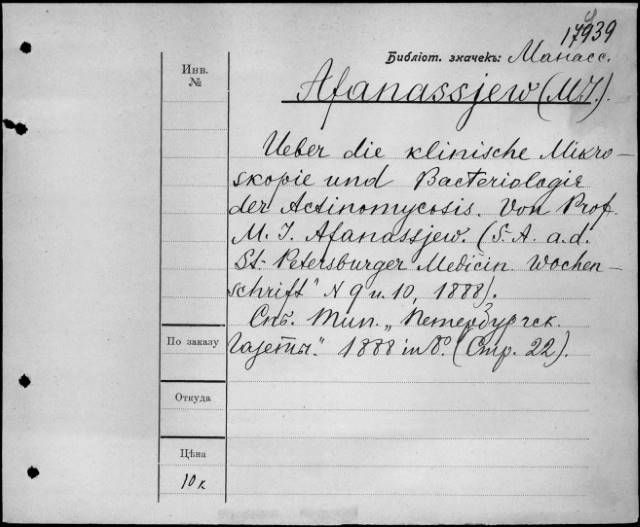 17939
Библіот. значекъ: Манасс.
Инв.
№
Afanassjew (M.J.).
Ueber die klinische Mikro-
skopie und Bacteriologie
der Actinomycosis. Von Prof.
M. J. Afanassjew. (S. A. a. d.
St. Petersburger Medicin. Wochen-
schrift" N 9 u. 10, 1888).
Спб. Тип. „Петербургск.
По заказу
Газеты". 1888 in 8°. (Стр. 22).
Откуда
Цѣна
10 к